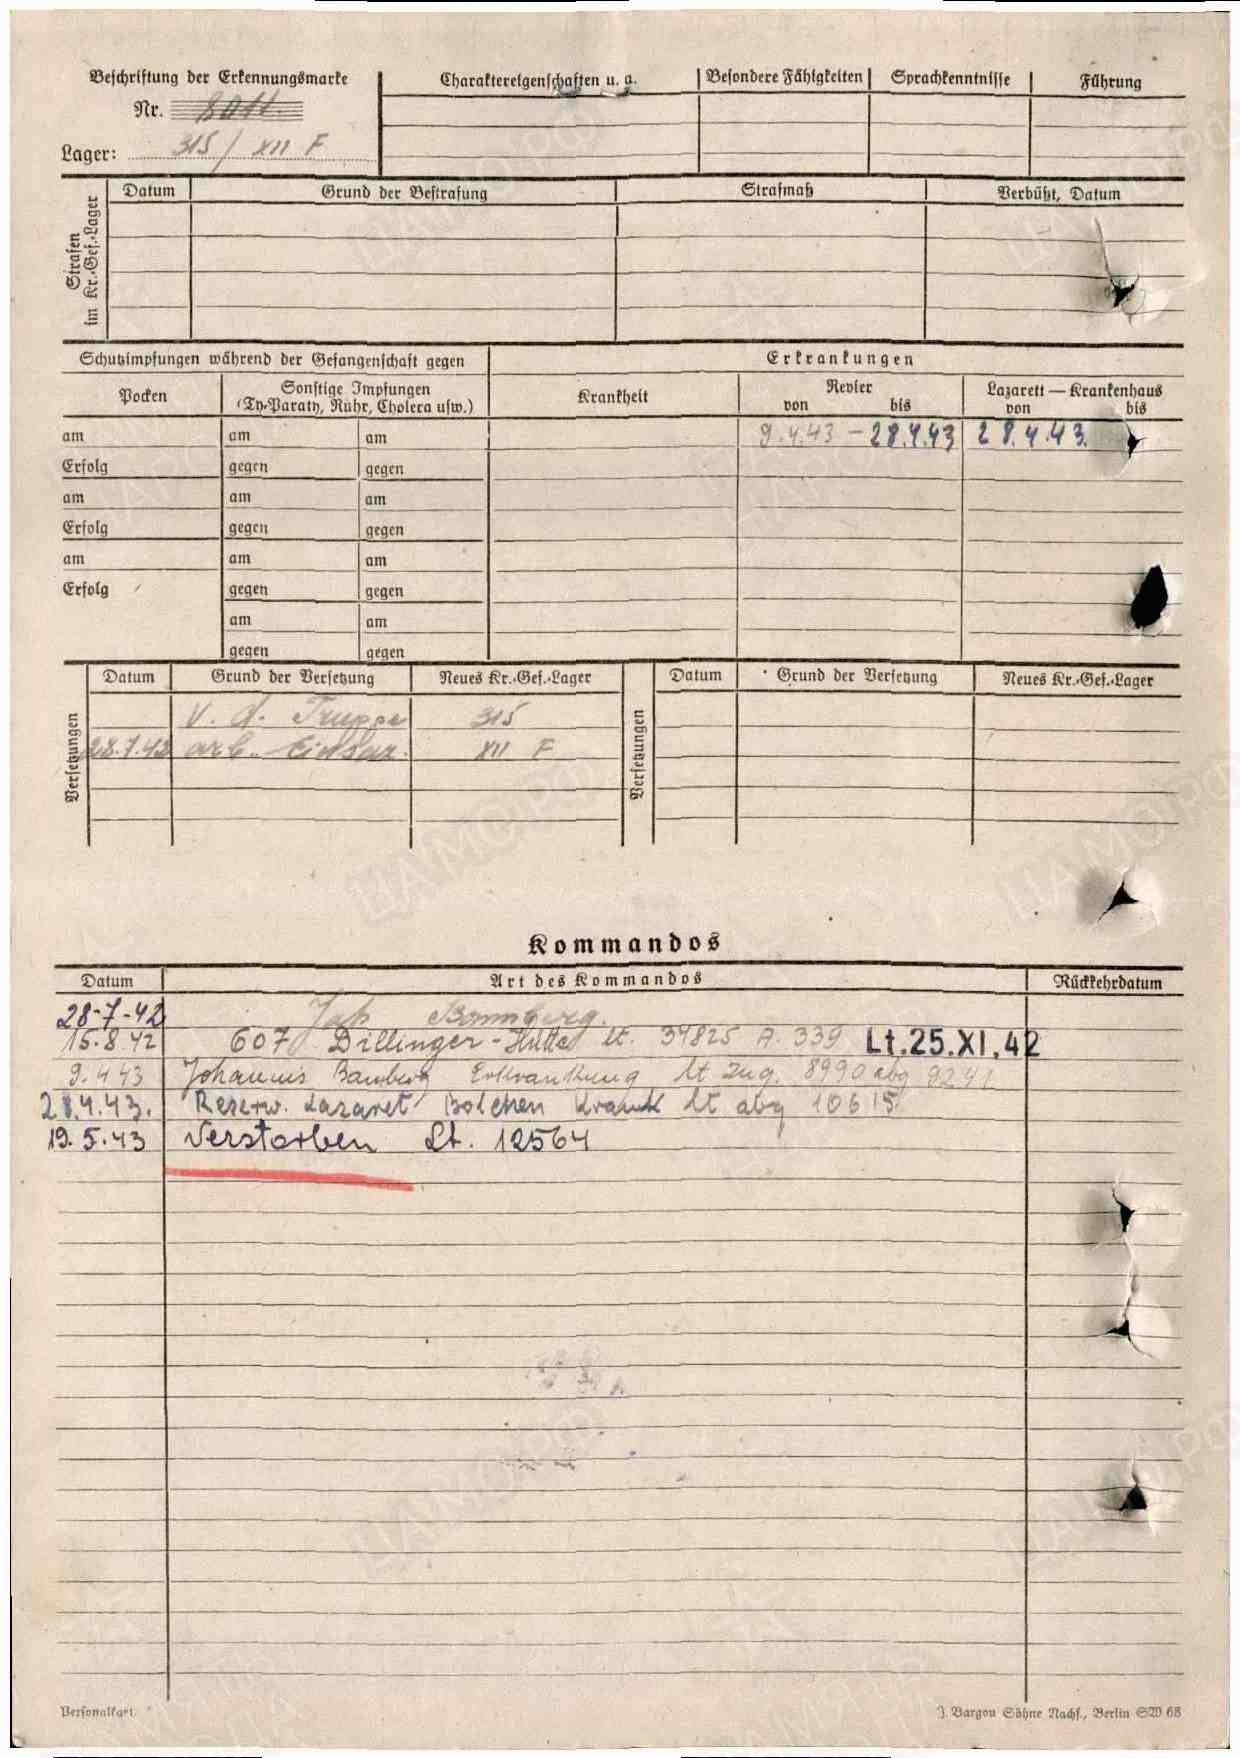 Beschriftung der Erkennungsmarke
Nr. 8011.
Lager: 315 / XII F
Charaktereigenschaften u. a.
Besondere Fähigkeiten
Sprachkenntnisse
Führung
Strafen im Kr.-Gef.-Lager
Datum
Grund der Bestrafung
Strafmaß
Verbüßt, Datum
Schutzimpfungen während der Gefangenschaft gegen
Erkrankungen
Pocken
Sonstige Impfungen
(Ty-Paraty, Ruhr, Cholera usw.)
Krankheit
Revier
von bis
Lazarett — Krankenhaus
von bis
am am am 9.4.43 – 28.4.43 28.4.43.
Erfolg gegen gegen
am am am
Erfolg gegen gegen
am am am
Erfolg gegen gegen
am am
gegen gegen
Versetzungen
Datum Grund der Versetzung Neues Kr.-Gef.-Lager
V. d. Truppe 315
28.7.42 arb. Einsatz. XII F
Versetzungen
Datum Grund der Versetzung Neues Kr.-Gef.-Lager
Kommandos
Datum Art des Kommandos Rückkehrdatum
28-7-42 Joh Bannberg.
15.8.42 607 Dillinger-Hütte lt. 34825 A. 339 Lt.25.XI.42
9.4.43 Johannis Banberg Erkrankung lt Zug. 8990 abg 9241
28.4.43. Reserw. Lazaret Bolchen Krank lt abg 10615.
19.5.43 Verstorben Lt. 12564
Personalkart.
J. Bargou Söhne Nachf., Berlin SW 68
ЦАМО.РФ